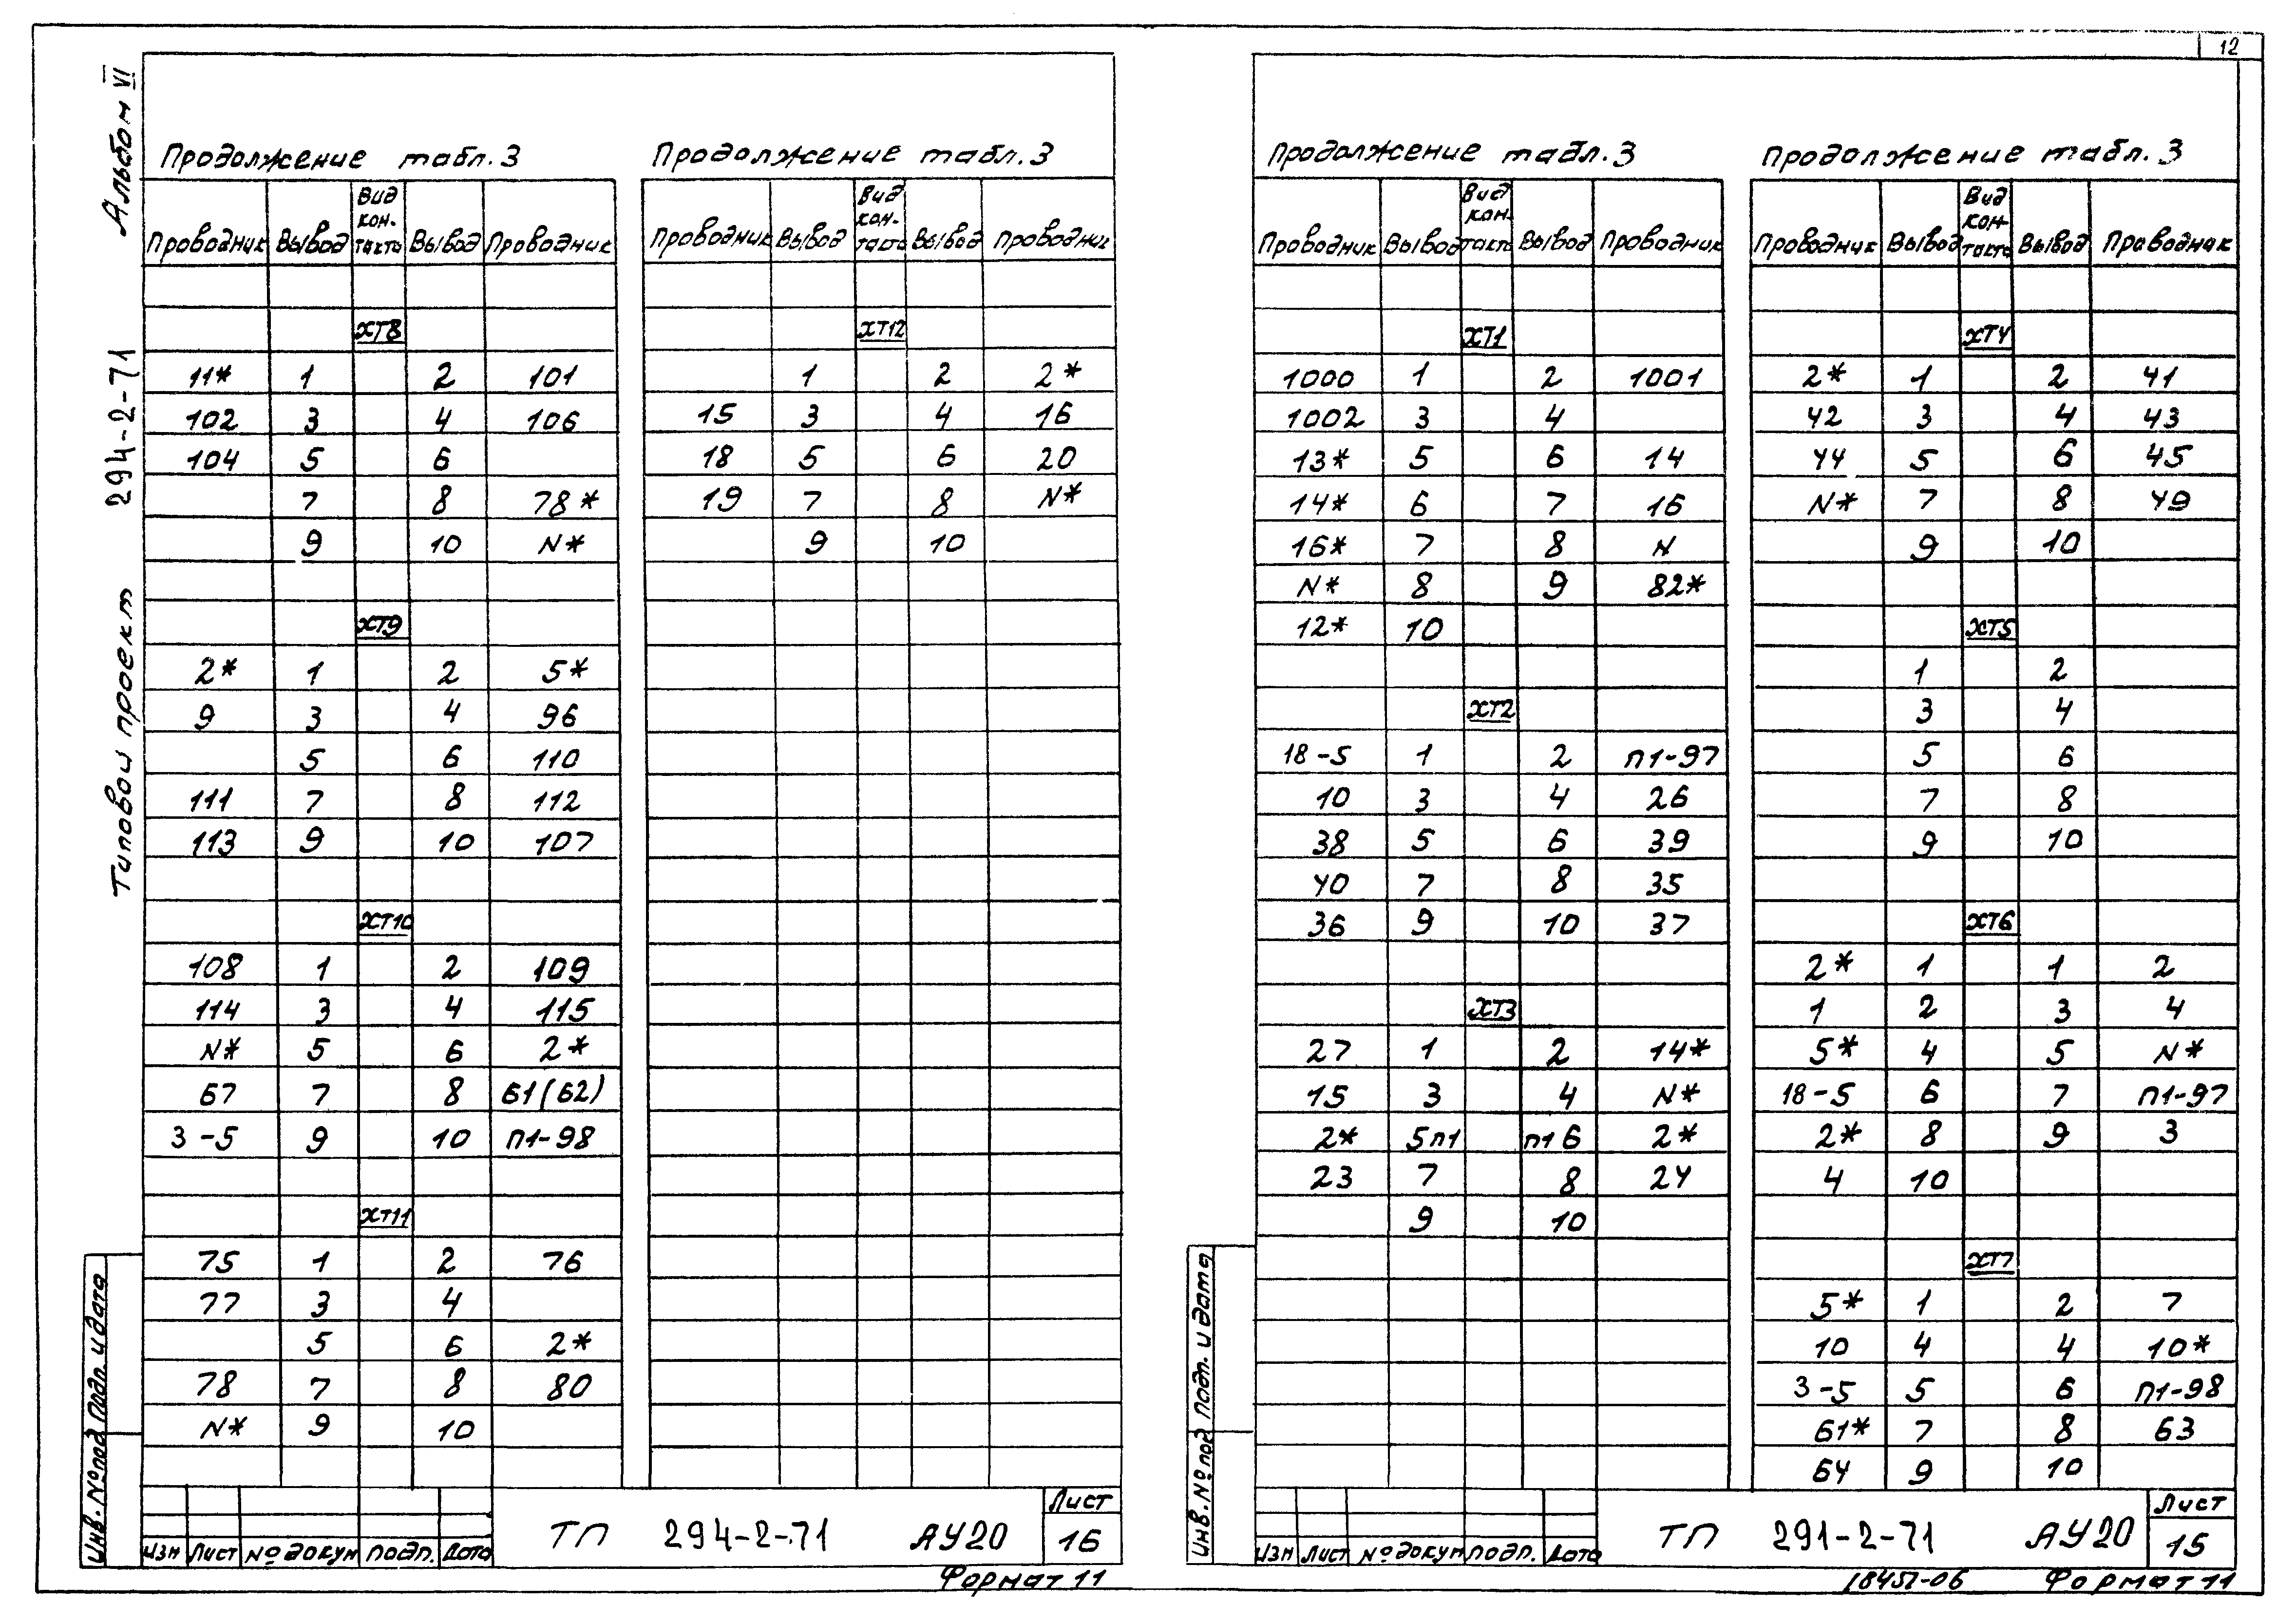 12
Альбом VI
Типовой проект 294-2-71
Продолжение табл. 3
Проводник Вывод Вид кон-такта Вывод Проводник
ХТ8
11* 1 2 101
102 3 4 106
104 5 6
7 8 78*
9 10 N*
ХТ9
2* 1 2 5*
9 3 4 96
5 6 110
111 7 8 112
113 9 10 107
ХТ10
108 1 2 109
114 3 4 115
N* 5 6 2*
67 7 8 61(62)
3-5 9 10 П1-98
ХТ11
75 1 2 76
77 3 4
5 6 2*
78 7 8 80
N* 9 10
Продолжение табл. 3
Проводник Вывод Вид кон-такта Вывод Проводник
ХТ12
1 2 2*
15 3 4 16
18 5 6 20
19 7 8 N*
9 10
Инв. № под Подп. и дата
Изм Лист № докум Подп. Дата
ТП 294-2-71 АУ20
Лист
16
Формат 11
Продолжение табл. 3
Проводник Вывод Вид кон-такта Вывод Проводник
ХТ1
1000 1 2 1001
1002 3 4
13* 5 6 14
14* 6 7 16
16* 7 8 N
N* 8 9 82*
12* 10
ХТ2
18-5 1 2 П1-97
10 3 4 26
38 5 6 39
40 7 8 35
36 9 10 37
ХТ3
27 1 2 14*
15 3 4 N*
2* 5П1 П1 6 2*
23 7 8 24
9 10
Продолжение табл. 3
Проводник Вывод Вид кон-такта Вывод Проводник
ХТ4
2* 1 2 41
42 3 4 43
44 5 6 45
N* 7 8 49
9 10
ХТ5
1 2
3 4
5 6
7 8
9 10
ХТ6
2* 1 1 2
1 2 3 4
5* 4 5 N*
18-5 6 7 П1-97
2* 8 9 3
4 10
ХТ7
5* 1 2 7
10 4 4 10*
3-5 5 6 П1-98
61* 7 8 63
64 9 10
Инв. № под Подп. и дата
Изм Лист № докум Подп. Дата
ТП 291-2-71 АУ20
Лист
15
18451-06 Формат 11